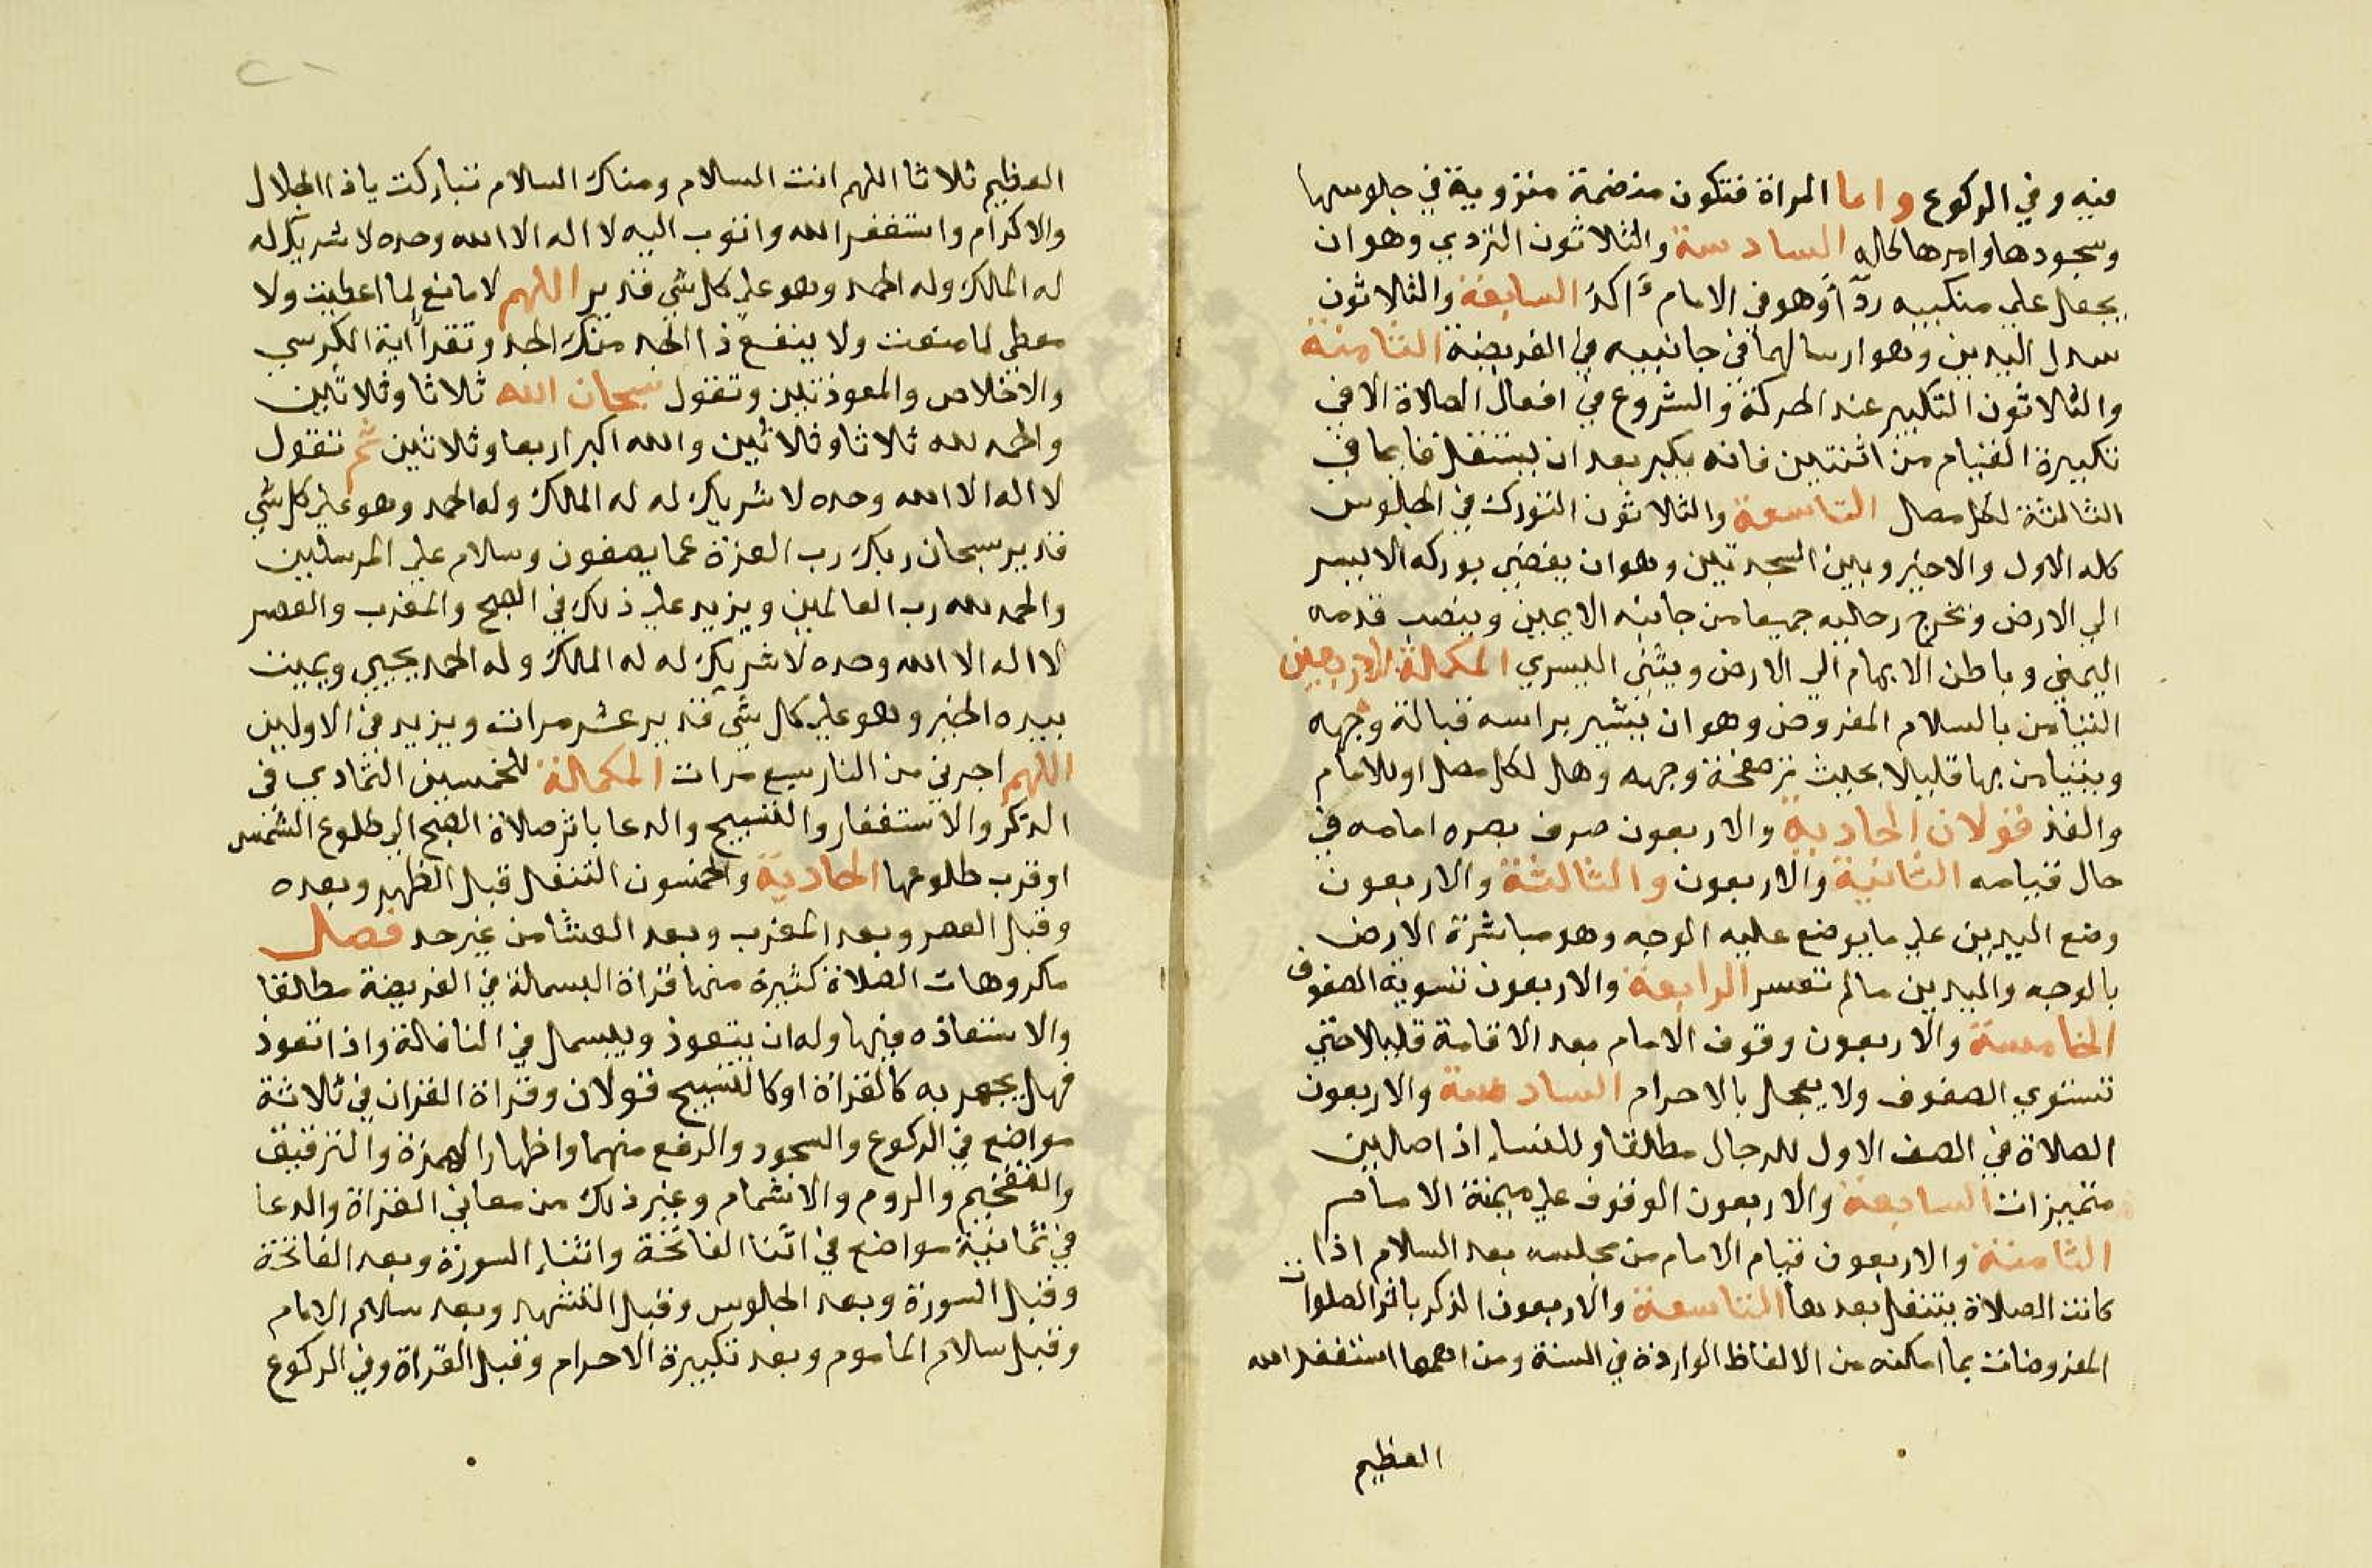 فيه وفي الركوع واما المراة فتكون منضمة منزوية في جلوسها
وسجودها وامرها كاله السادسة والثلاثون التردي وهو ان
يجعل علي منكبيه ردآ وهو في الامام ءاكد السابعة والثلاثون
سدل اليدين وهو ارسالهما في جانبيه في الفريضة الثامنة
والثلاثون التكبير عند الحركة والشروع في افعال الصلاة الا في
تكبيرة القيام من اثنتين فانه يكبر بعد ان يستقل قايما في
الثالثة لكل مصل التاسعة والثلاثون التورك في الجلوس
كله الاول والاخير وبين السجدتين وهو ان يفضي بوركه الايسر
الي الارض ويخرج رجليه جميعا من جانبه الايمين وينصب قدمه
اليمني وباطن الابهام الي الارض ويثني اليسري المكملة للاربعين
التيامن بالسلام المفروض وهو ان يشير براسه قبالة وجهه
ويتيامن بها قليلا بحيث تر صفحة وجهه وهل لكل مصل او للامام
والفذ قولان الحادية والاربعون صرف بصره امامه في
حال قيامه الثانية والاربعون والثالثة والاربعون
وضع اليدين علي ما يوضع عليه الوجه وهو مباشرة الارض
بالوجه واليدين ما لم تعسر الرابعة والاربعون تسوية الصفوف
الخامسة والاربعون وقوف الامام بعد الاقامة قليلا حتي
تستوي الصفوف ولا يعجل بالاحرام السادسة والاربعون
الصلاة في الصف الاول للرجال مطلقا وللنساء اذا صلين
متميزات السابعة والاربعون الوقوف علي ميمنة الامام
الثامنة والاربعون قيام الامام من مجلسه بعد السلام اذا
كانت الصلاة يتنفل بعدها التاسعة والاربعون الذكر باثر الصلوات
المفروضات بما امكنه من الالفاظ الواردة في السنة ومن اهمها استغفر الله
العظيم
٢١
العظيم ثلاثا اللهم انت السلام ومنك السلام تباركت ياذا الجلال
والاكرام واستغفر الله واتوب اليه لا اله الا الله وحده لا شريك له
له الملك وله الحمد وهو علي كل شي قدير اللهم لا مانع لما اعطيت ولا
معطي لما منعت ولا ينفع ذا الجد منك الجد وتقرا آية الكرسي
والاخلاص والمعوذتين وتقول سبحان الله ثلاثا وثلاثين
والحمد لله ثلاثا وثلاثين والله اكبر اربعا وثلاثين ثم تقول
لا اله الا الله وحده لا شريك له له الملك وله الحمد وهو علي كل شي
قدير سبحان ربك رب العزة عما يصفون وسلام علي المرسلين
والحمد لله رب العالمين ويزيد علي ذلك في الصبح والمغرب والعصر
لا اله الا الله وحده لا شريك له له الملك وله الحمد يحيي ويميت
بيده الخير وهو علي كل شي قدير عشر مرات ويزيد في الاولين
اللهم اجرني من النار سبع مرات المكملة للخمسين التمادي في
الذكر والاستغفار والتسبيح والدعا باثر صلاة الصبح الي طلوع الشمس
او قرب طلوعها الحادية والخمسون التنفل قبل الظهر وبعده
وقبل العصر وبعد المغرب وبعد العشا من غير حد فصل
مكروهات الصلاة كثيرة منها قراة البسملة في الفريضة مطلقا
والاستعاذه فيها وله ان يتعوذ ويبسمل في النافلة واذا تعوذ
فهل يجهر به كالقراة او كالتسبيح قولان وقراة القران في ثلاثة
مواضع في الركوع والسجود والرفع منهما واظهار الهمزة والترقيق
والتفخيم والروم والاشمام وغير ذلك من معاني القراة والدعا
في ثمانية مواضع في اثنا الفاتحة واثناء السورة وبعد الفاتحة
وقبل السورة وبعد الجلوس وقبل التشهد وبعد سلام الامام
وقبل سلام الماموم وبعد تكبيرة الاحرام وقبل القراة وفي الركوع